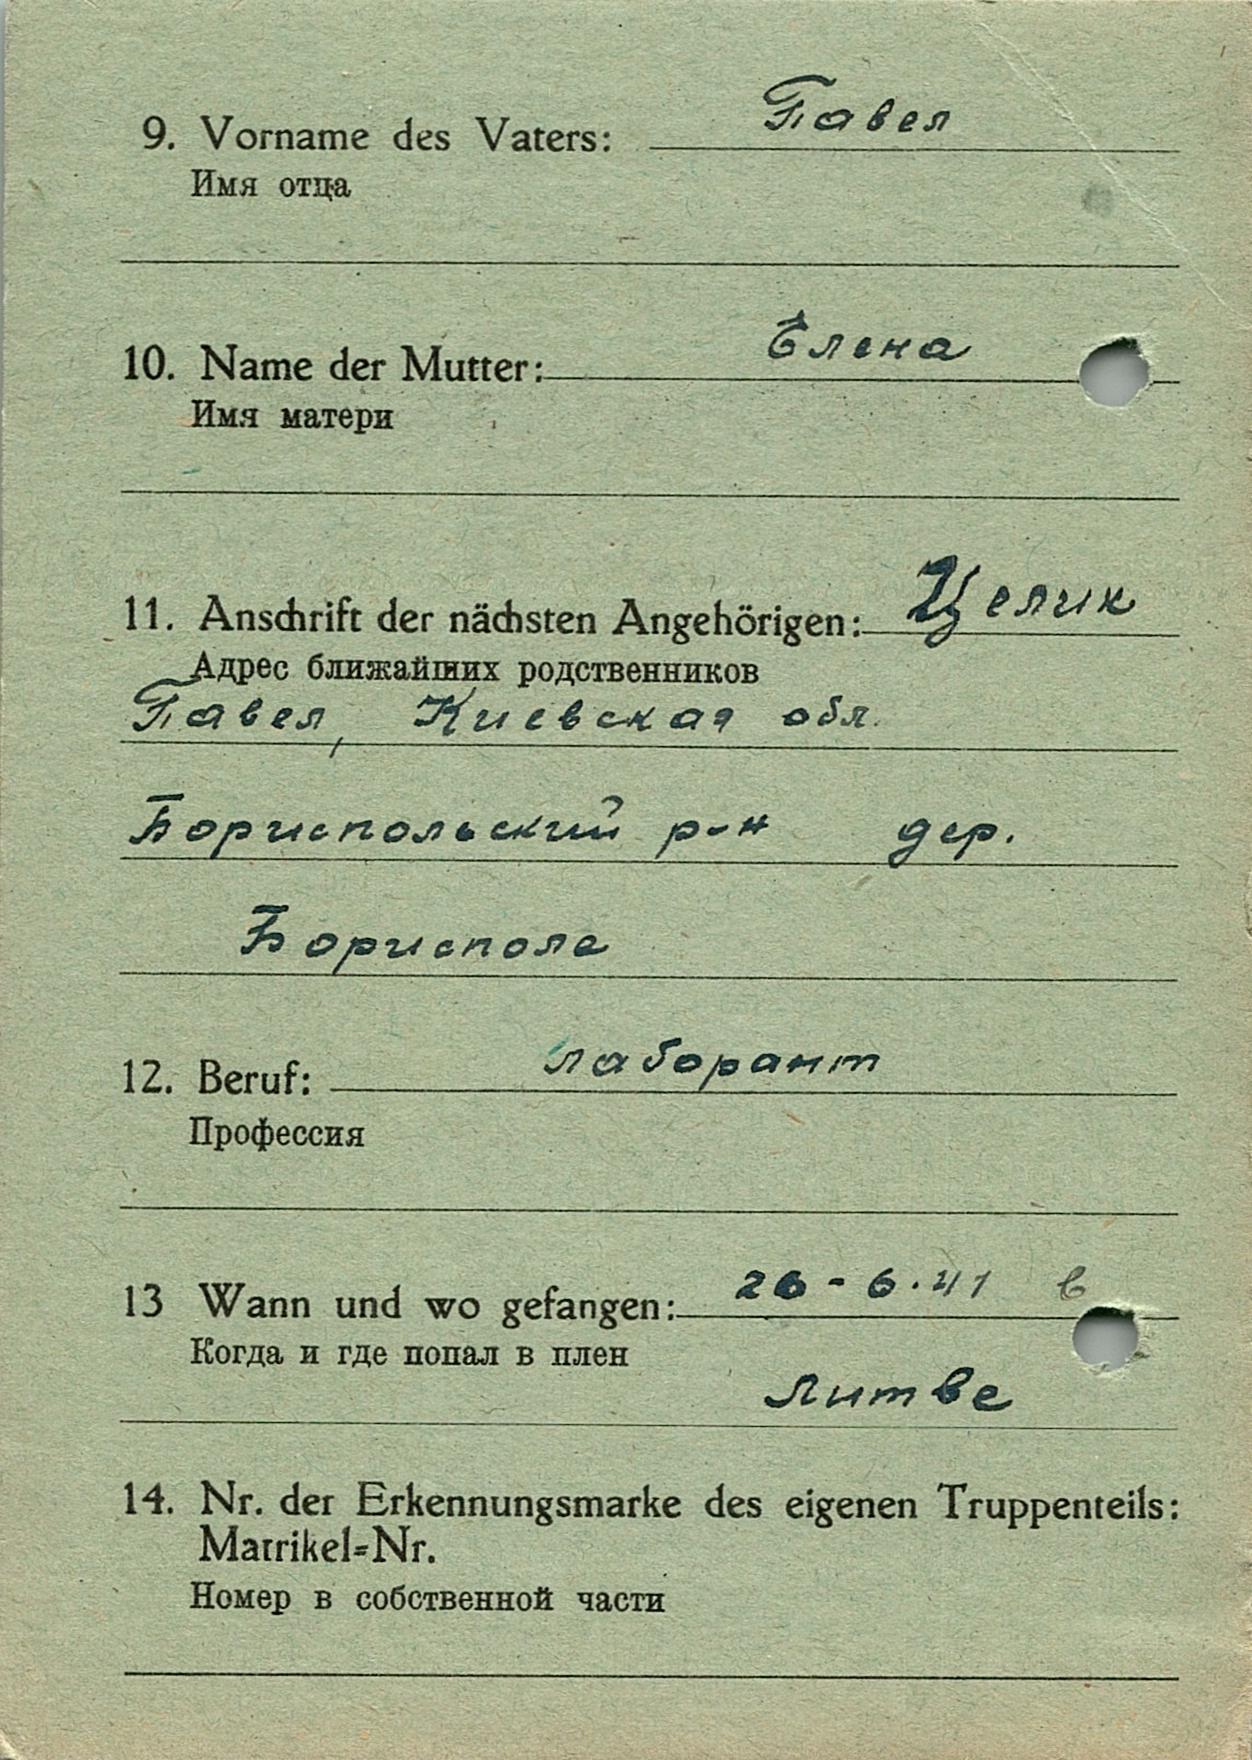 9. Vorname des Vaters: Павел
Имя отца
10. Name der Mutter: Елена
Имя матери
11. Anschrift der nächsten Angehörigen: Целик
Адрес ближайших родственников
Павел, Киевская обл.
Бориспольский р-н дер.
Борисполе
12. Beruf: лаборант
Профессия
13 Wann und wo gefangen: 26-6.41 в
Когда и где попал в плен
Литве
14. Nr. der Erkennungsmarke des eigenen Truppenteils:
Matrikel=Nr.
Номер в собственной части